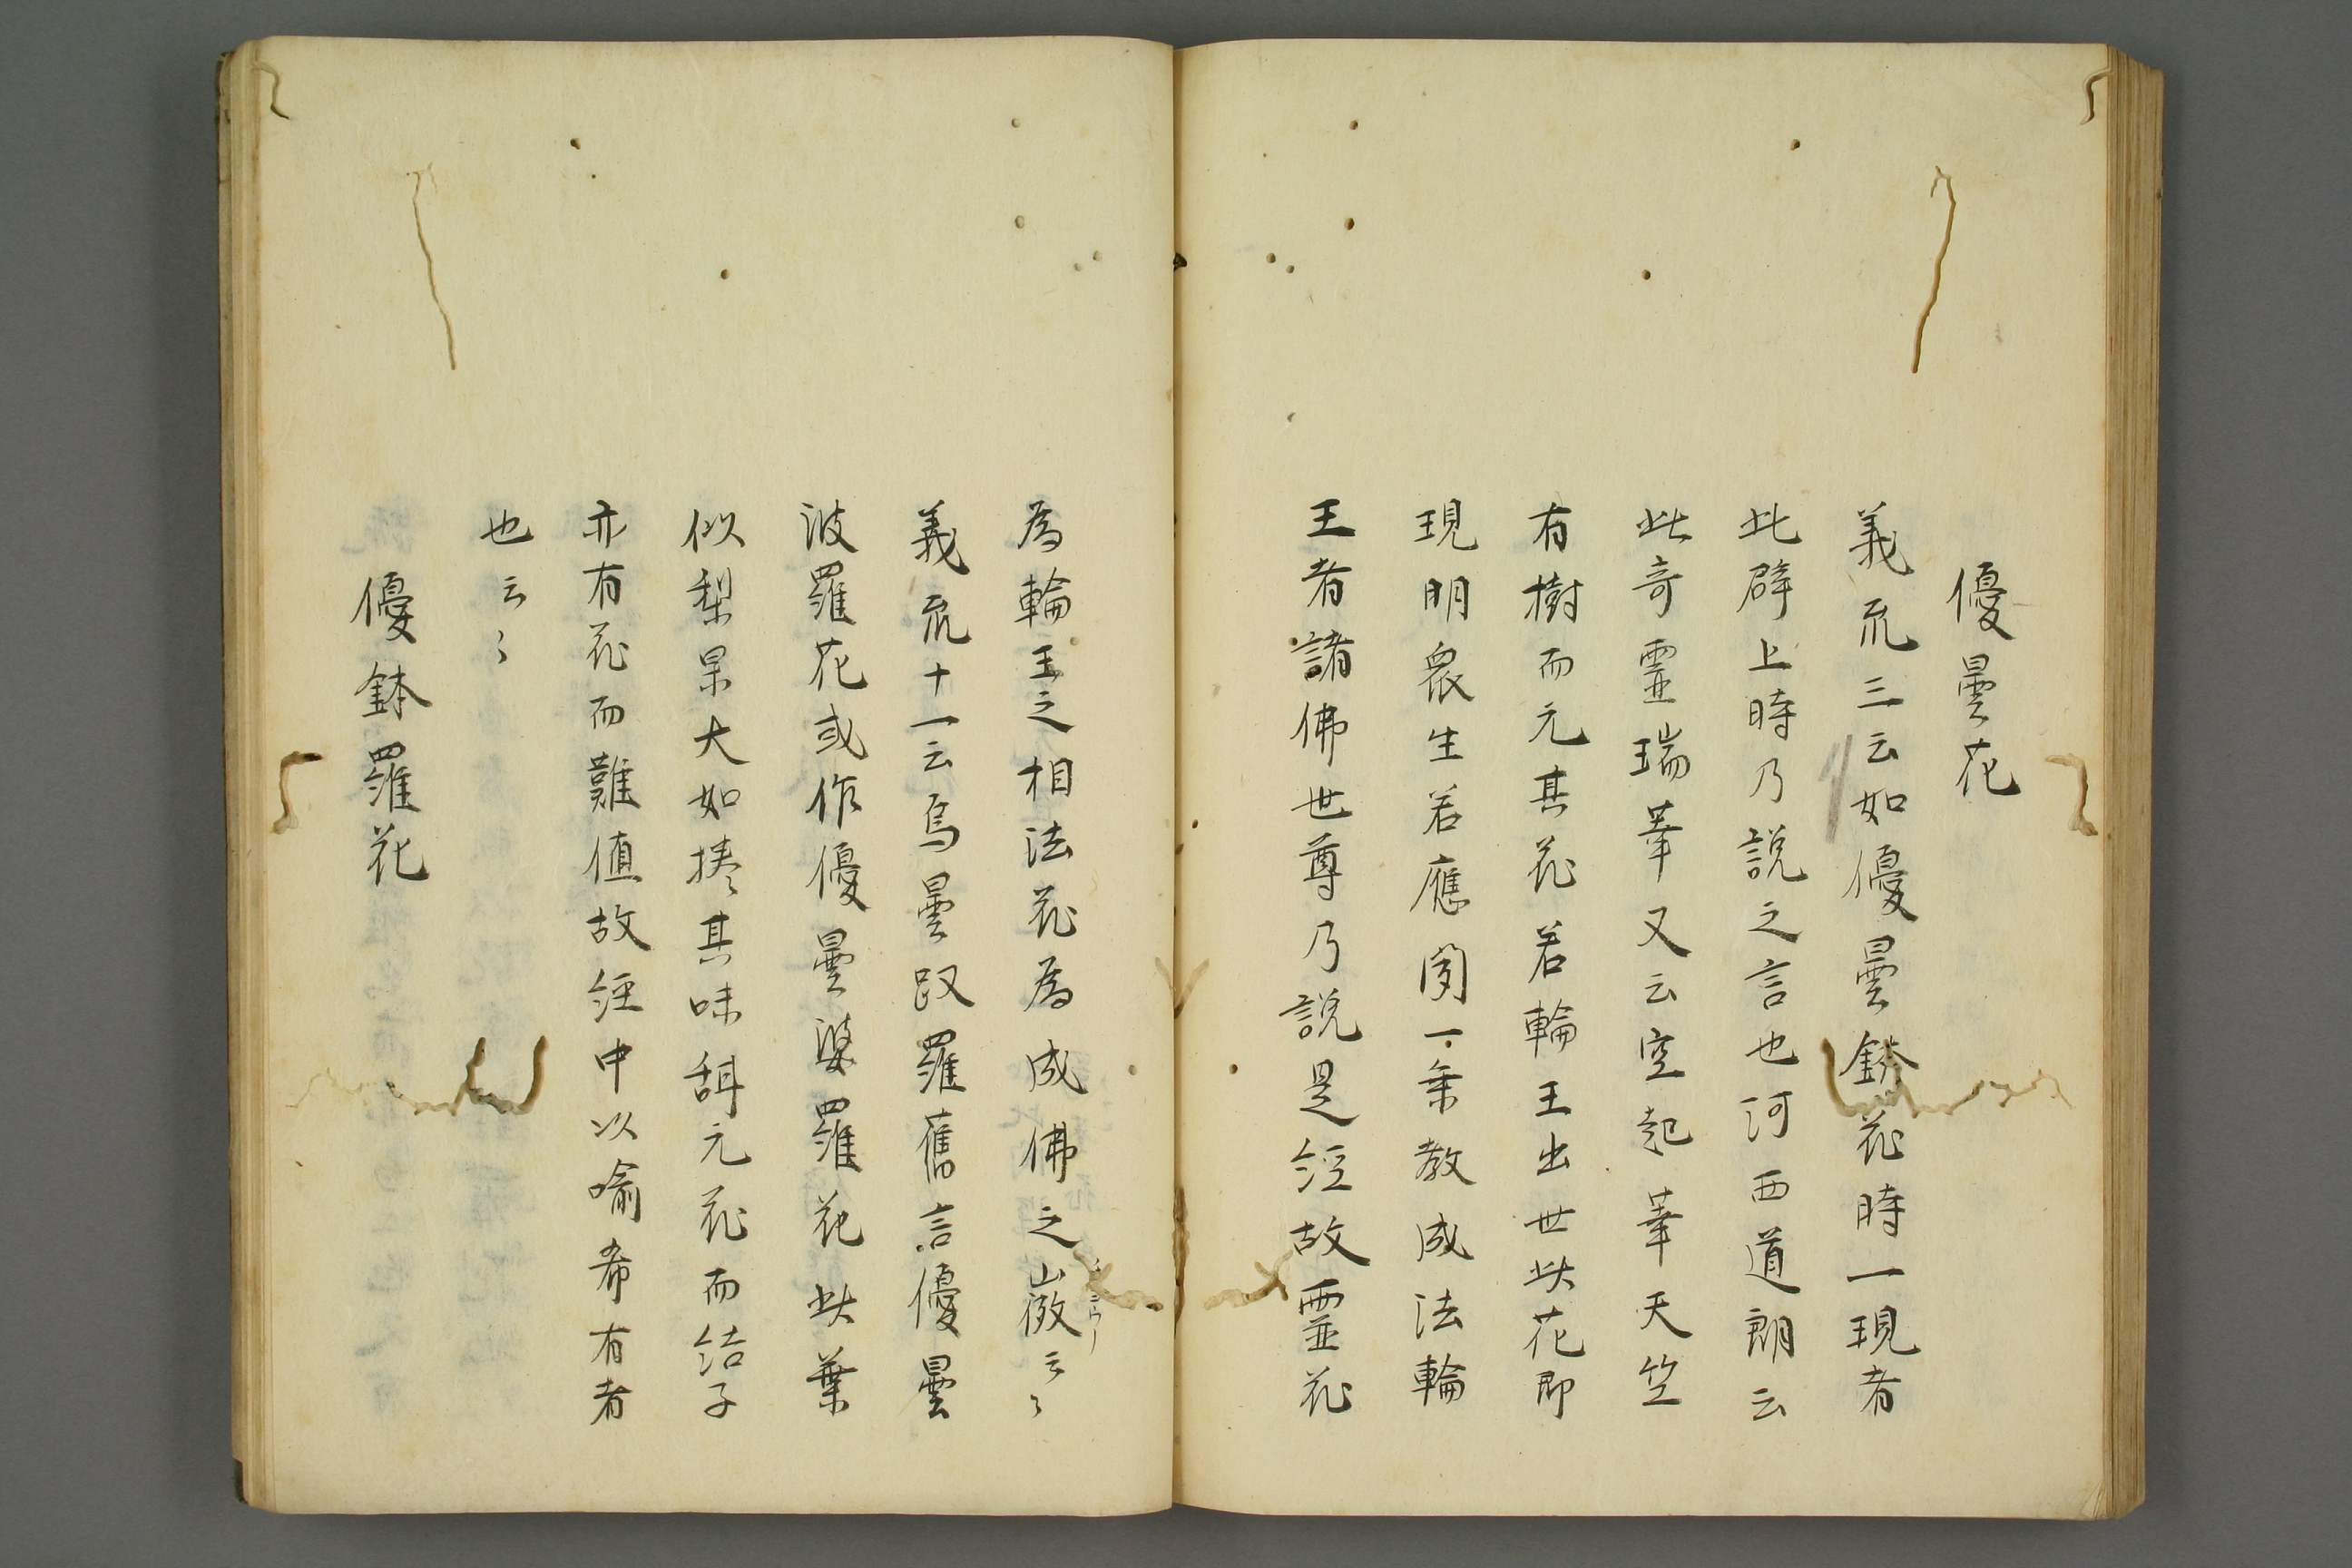 優曇花
義疏三云如優曇鉢花時一現者
此譬上時乃説之言也河西道朗云
此奇靈瑞華又云空起華天竺
有樹而无其花若輪王出世此花即
現明衆生若應聞一乗教成法輪
王者諸佛世尊乃説是經故靈花
為輪王之相法花為成佛之徴云々
義疏十一云烏曇跋羅舊言優曇
波羅花或作優曇婆羅花此葉
似梨果大如捲其味甜无花而結子
亦有花而難值故經中以喻希有者
也云々
優鉢羅花